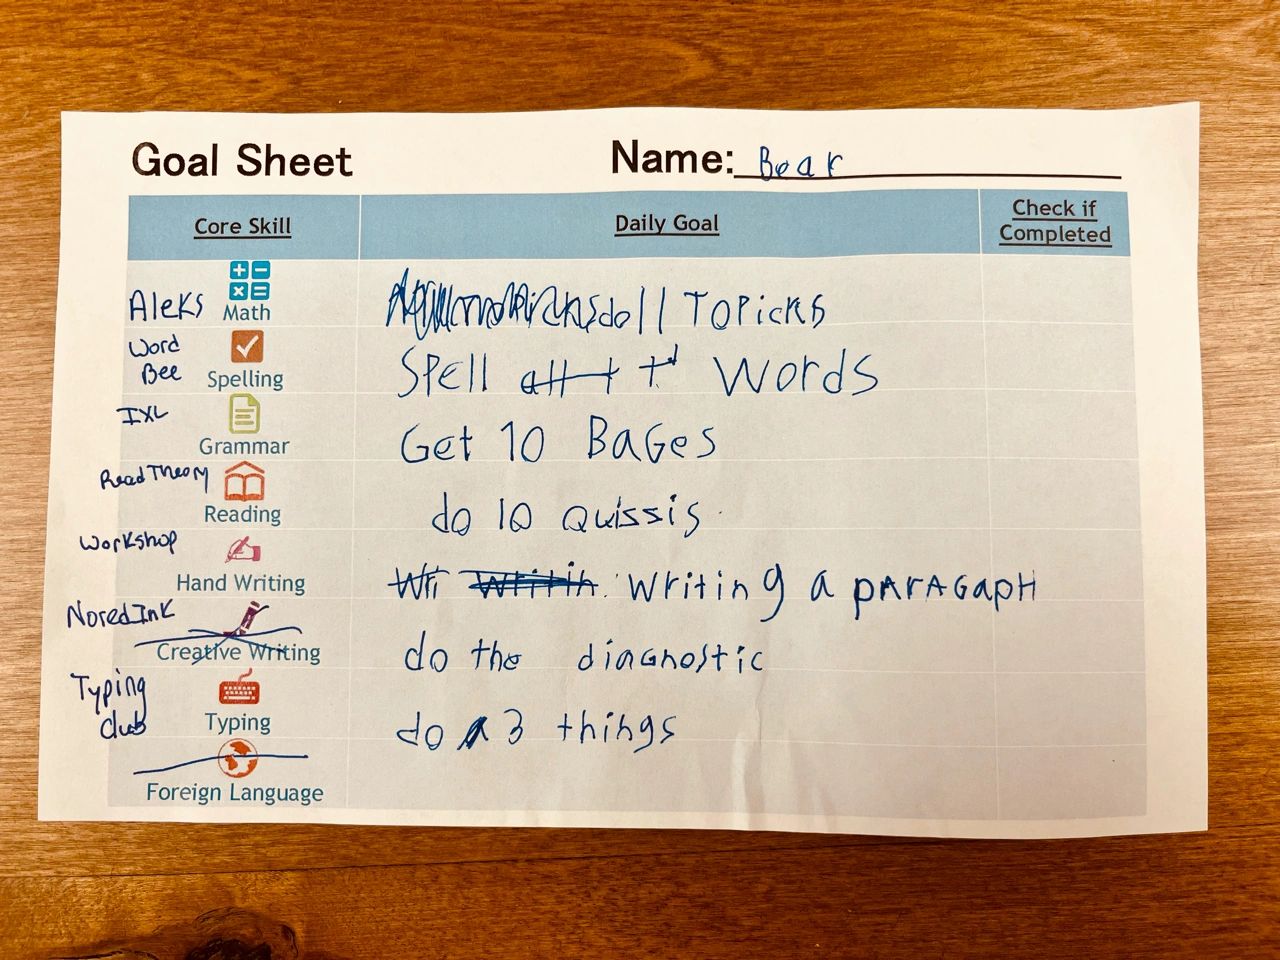 Goal Sheet Name: Bear
Core Skill Daily Goal Check if Completed
Aleks Math do 11 TOPicks
Word Bee Spelling SPell words
IXL Grammar Get 10 BaGes
Read Theory Reading do 10 Quissis
Workshop Hand Writing Wri Writin writing a pARAGapH
NoredInk Creative Writing do the diagnostic
Typing Club Typing do 3 things
Foreign Language